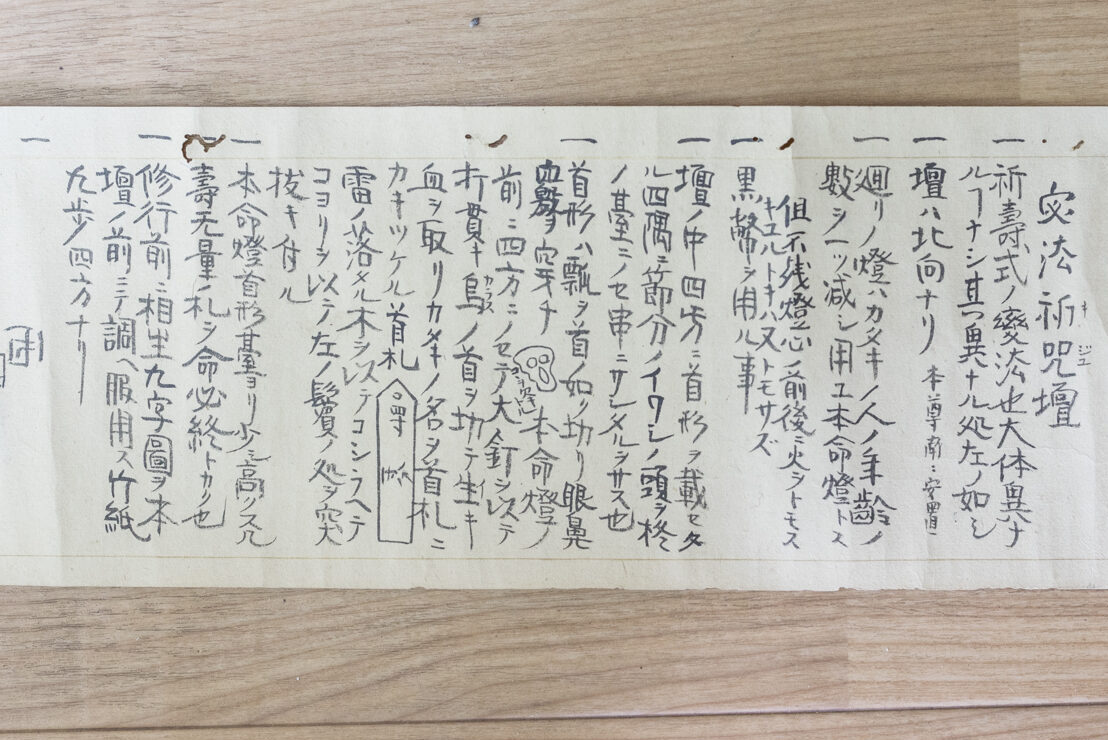 宓法祈呪壇
キ ジユ
一 祈壽式ノ變法也大体異ナ
ルヿナシ其異ナル処左ノ如シ
一 壇ハ北向ナリ 本尊南ニ安置
一 廻リノ燈ハカタキノ人ノ年齢ノ
數シ一ツ減シ用ユ本命燈トス
但不残燈心ノ前後ニ火ヲトモス
キエルトキハ又トモサズ
一 黒幣ヲ用ル事
一 壇ノ中四方ニ首形ヲ載セタ
ル四隅ニ節分ノイワシノ頭ヲ柊
ノ臺ニノセ串ニサシタルヲサス也
一 首形ハ瓢ヲ首ノ如ノ切リ眼鼻
ヲ穿チ 本命燈ノ
前ニ四方ニノセテ大ノ釘シ以テ
打貫キ烏ノ首ヲ切テ生キ
カラス
血ヲ取リカタキノ名ヲ首札ニ
カキツケル 首札
雷ノ落タル木ヲ以テコシラヘテ
コヨリシ以テ左ノ鬢ノ処ヲ突
抜キ付ル
一 本命燈首形臺ヨリ少シ高クスル
一 壽无量ノ札ヲ命必終トカク也
一 修行前ニ相生九字圖ヲ本
壇ノ前ニテ調ヘ服用ス竹紙
九歩ノ四方ナリ
一